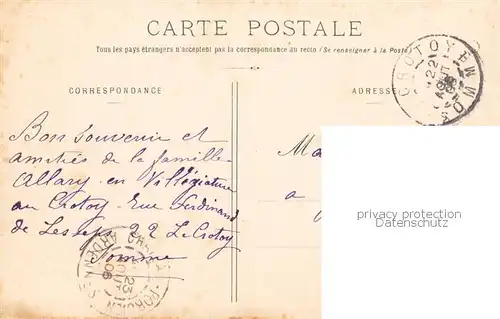 CARTE POSTALE
Tous les pays étrangers n'acceptent pas la correspondance au recto (Se renseigner à la Poste)
CORRESPONDANCE
ADRESSE
CROTOY
SOMME
Bon souvenir et
amitiés de la famille
Allary en Villégiature
au Crotoy rue Ferdinand
de Lesseps 22 Le Crotoy
Somme
Ma
a
privacy protection
Datenschutz
ARDE
23
06